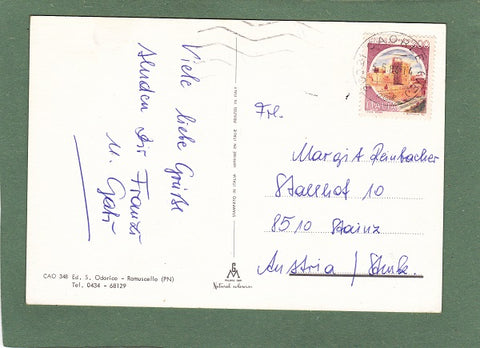 Viele liebe Grüße
senden Dir Franzi
u. Gabi
Frl.
Margit Reinbacher
Stallhof 10
8510 Stainz
Austria / Stmk.
CAO 348 Ed. S. Odorico - Ramuscello (PN)
Tel. 0434 - 68129